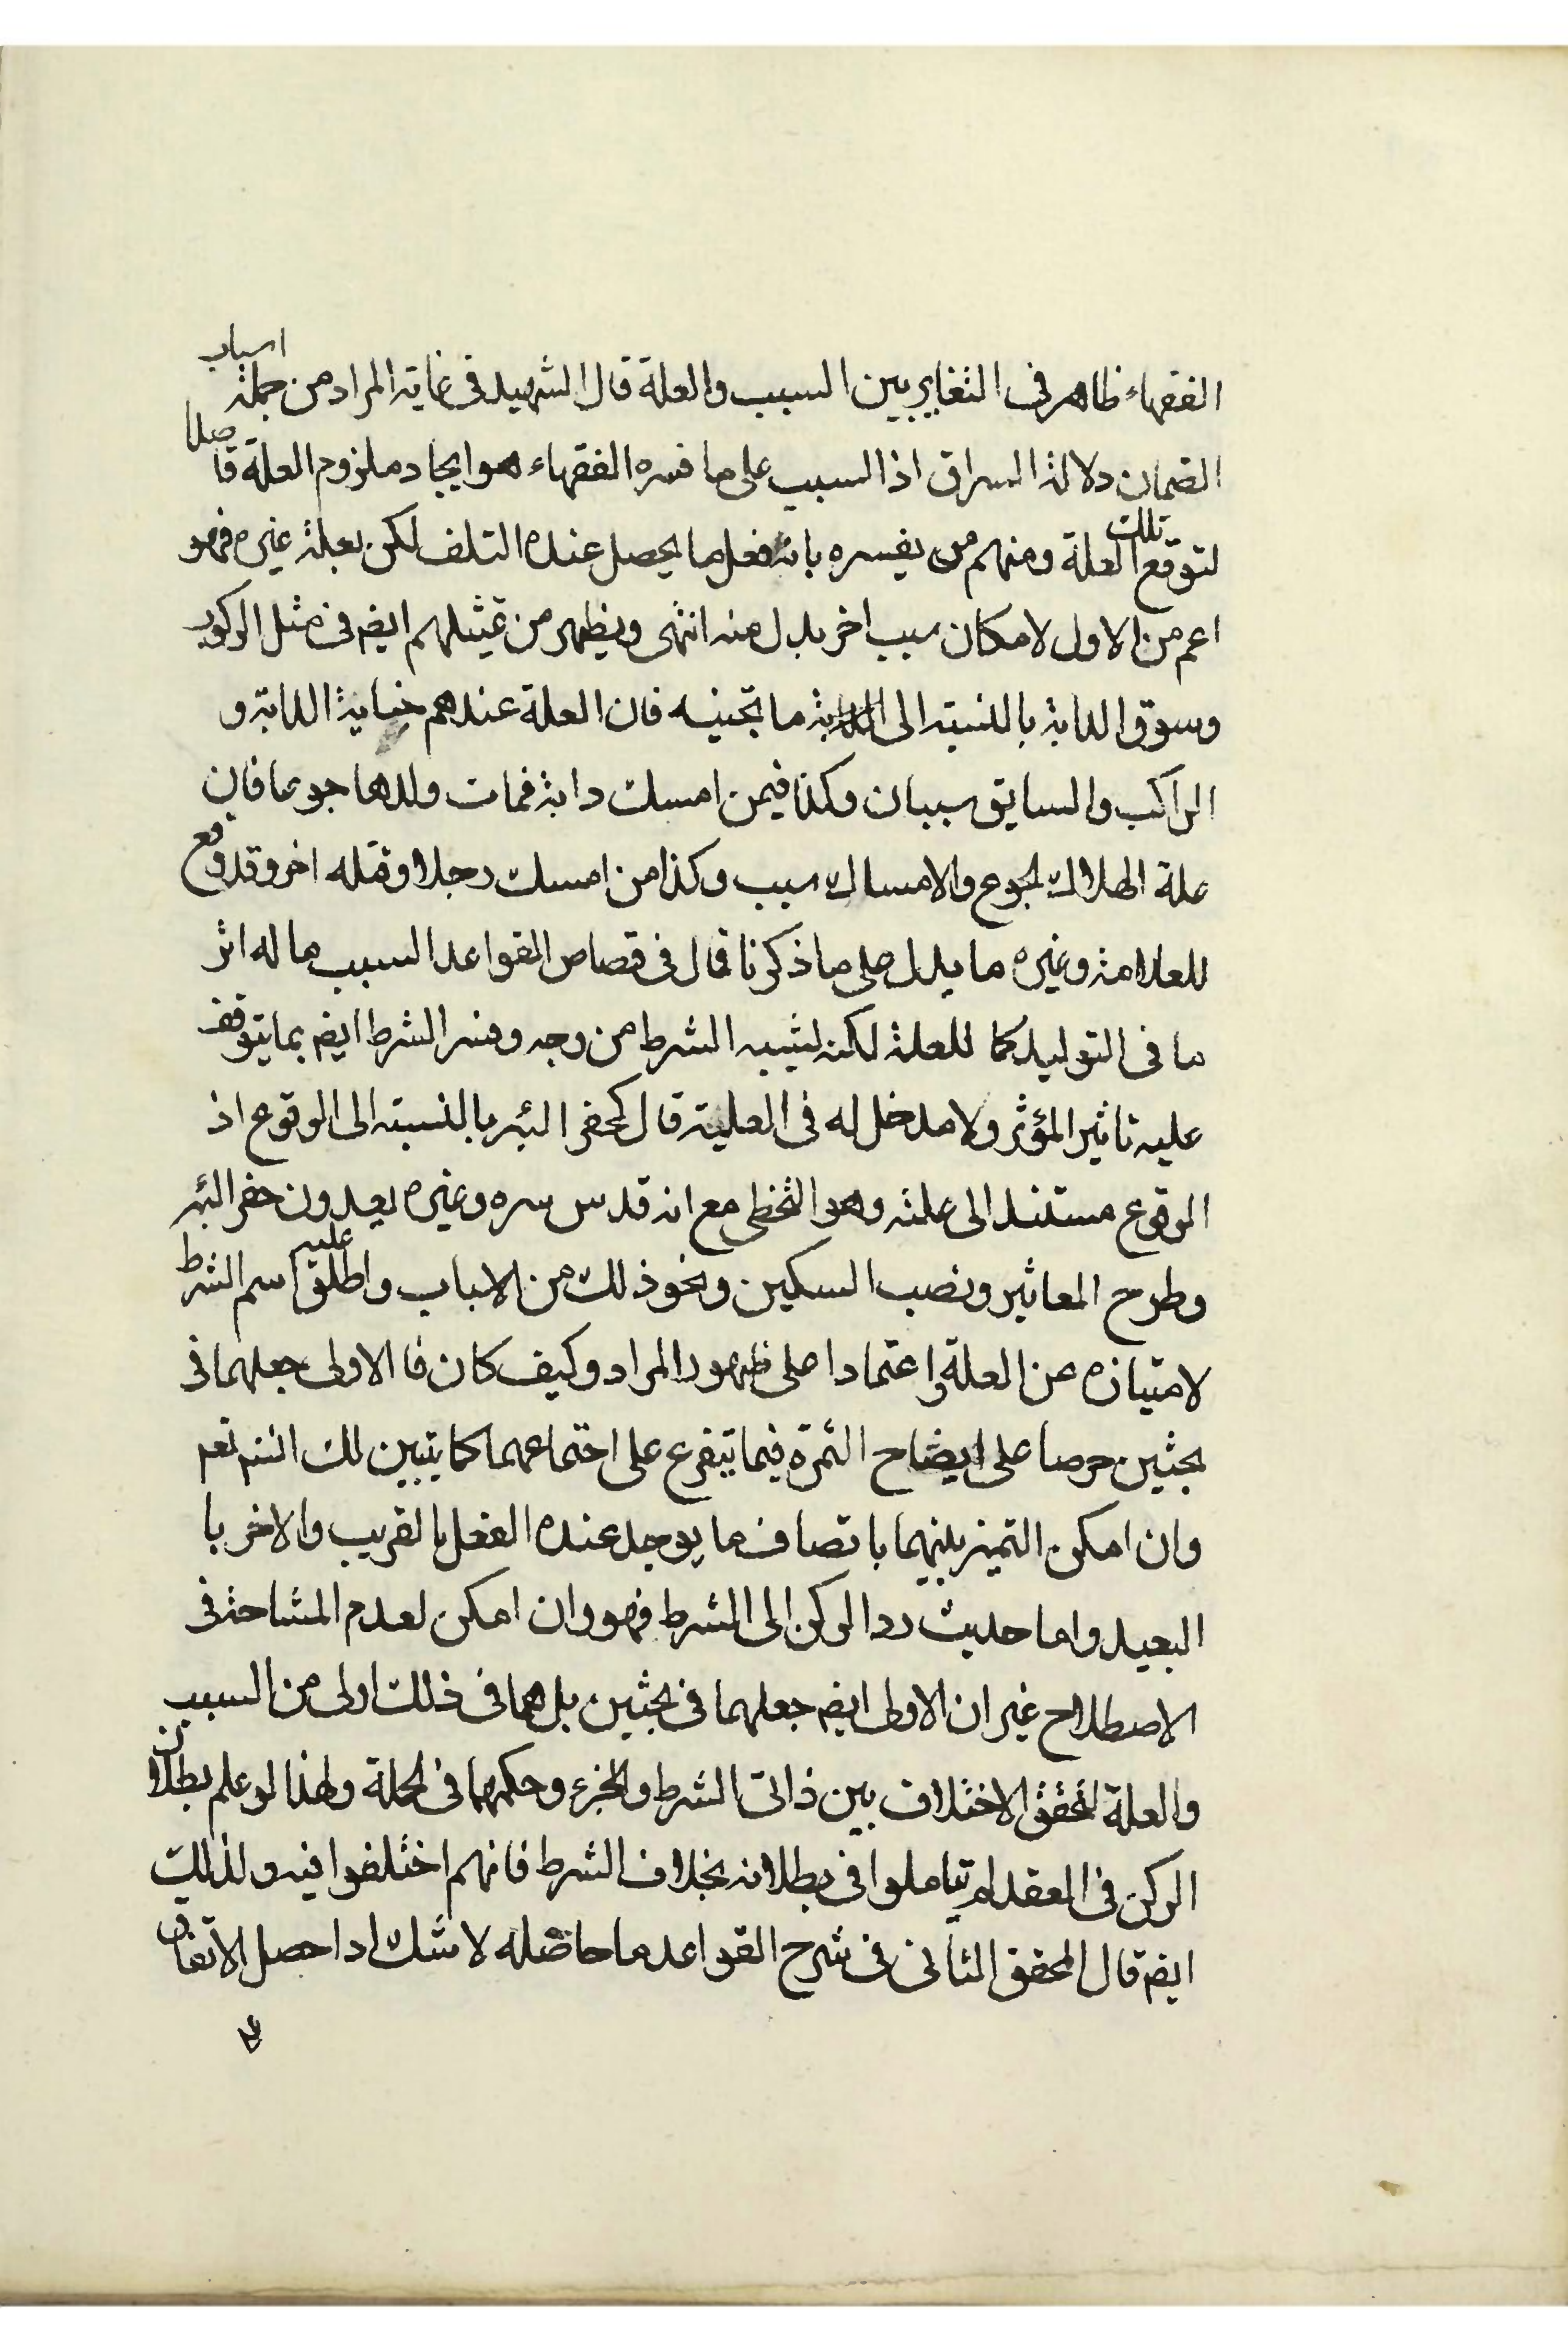 الفقهاء ظاهر فى التغاير بين السبب والعلة قال الشهيد فى غاية المراد من جملة اسباب
الضمان دلالة السراق اذ السبب على ما فسره الفقهاء هو ايجاد ملزوم العلة قاصدا
لتوقع تلك العلة ومنهم من يفسره بانه فعل ما يحصل عنده التلف لكن بعلة غيره فهو
اعم من الاول لامكان سبب اخر بدل منه انتهى ويظهر من تمثيلهم ايضم فى مثل الركوب
وسوق الدابة بالنسبة الى ما تجنيه فان العلة عندهم جناية الدابة و
الراكب والسايق سببان وكذا فيمن امسك دابة فمات ولدها جوعا فان
علة الهلاك الجوع والامساك سبب وكذا من امسك رجلا وقتله اخر وقد وقع
للعلامة وغيره ما يدل على ما ذكرنا قال فى قصاص القواعد السبب ما له اثر
ما فى التوليد كما للعلة لكنه يشبه الشرط من وجه وفسر الشرط ايضم بما يتوقف
عليه تاثير المؤثر ولا مدخل له فى العلية قال كحفر البئر بالنسبة الى الوقوع اذ
الوقوع مستند الى علته وهو التخطى مع انه قدس سره وغيره يعدون حفر البئر
وطرح المعاثير ونصب السكين ونحو ذلك من الاسباب واطلق عليه اسم الشرط
لامتيازه عن العلة واعتمادا على ظهور المراد وكيف كان فالاولى جعلهما فى
بحثين حرصا على ايضاح الثمرة فيما يتفرع على اجتماعهما كما يتبين لك انشم نعم
وان امكن التميز بينهما باتصاف ما يوجد عنده الفعل بالقريب والاخر با
البعيد واما حديث رد الركن الى الشرط فهو وان امكن لعدم المشاحة فى
الاصطلاح غير ان الاولى ايضم جعلهما فى بحثين بل هما فى ذلك اولى من السبب
والعلة لتحقق الاختلاف بين ذاتى الشرط والجزء وحكمهما فى الجملة ولهذا لو علم بطلان
الركن فى العقد لم يتاملوا فى بطلانه بخلاف الشرط فانهم اختلفوا فيه ولذلك
ايضم قال المحقق الثانى فى شرح القواعد ما حاصله لا شك اذا حصل الاتفاق